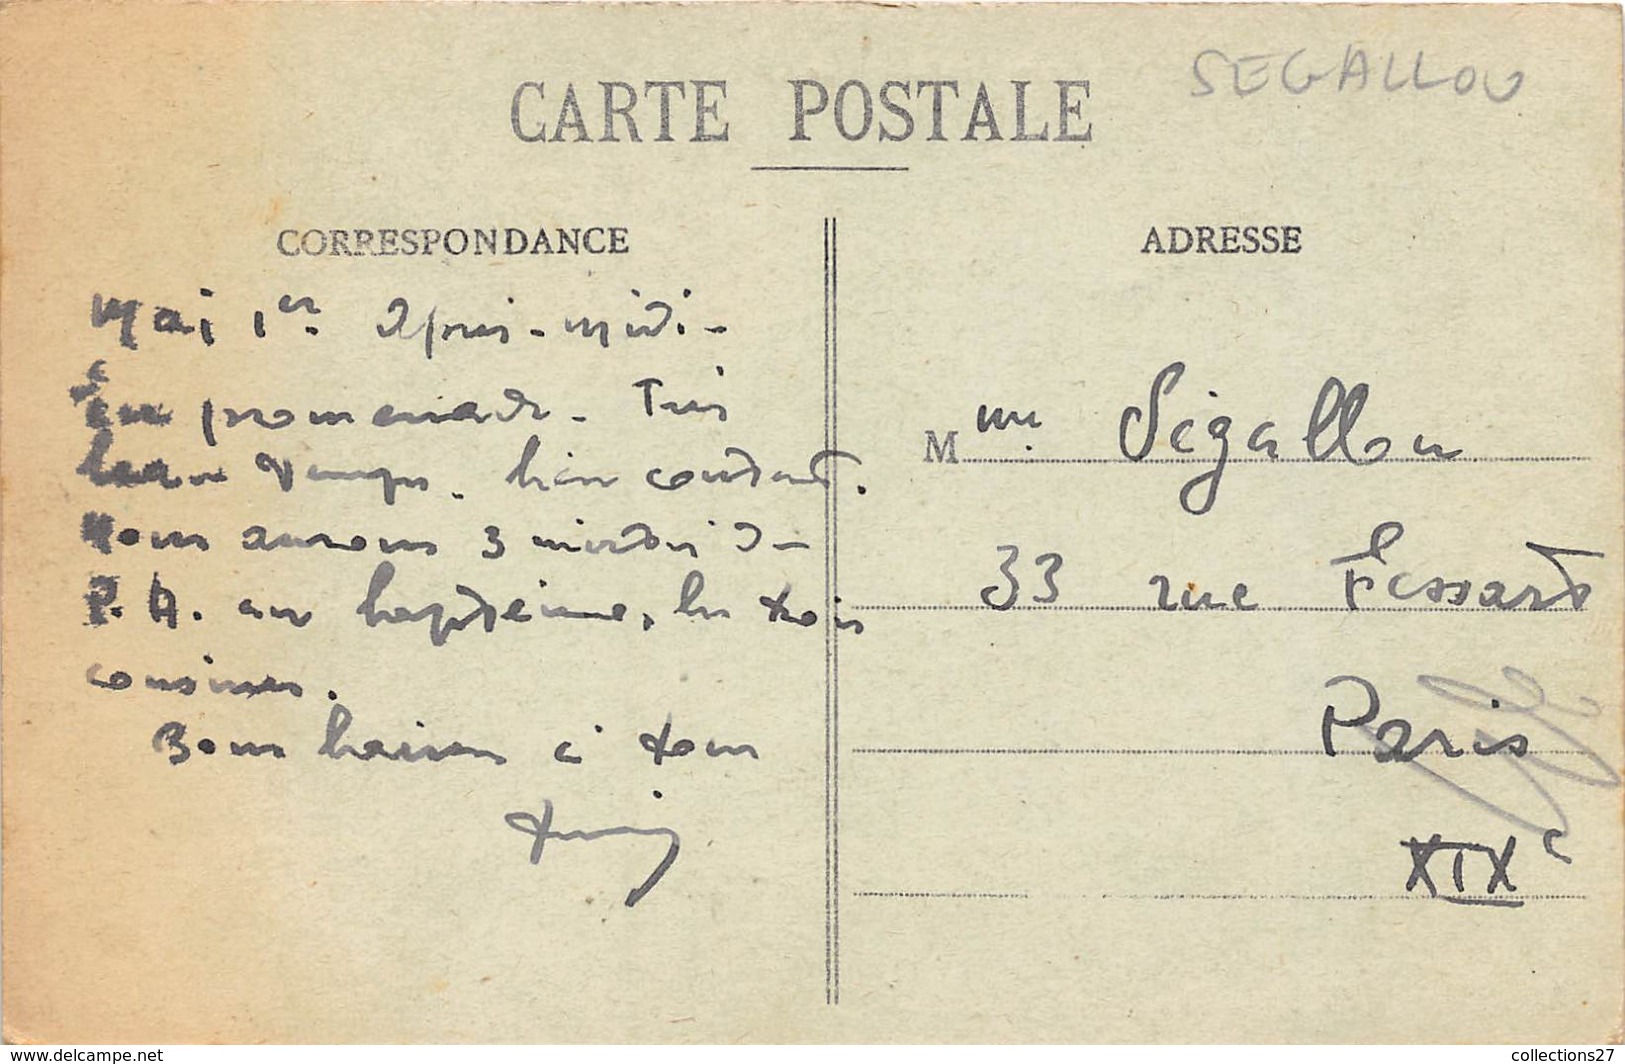 SEGALLOU
CARTE POSTALE
CORRESPONDANCE
Mai 1er après-midi -
En promenade - Très
beau temps. bien content.
Nous aurons 3 de
P. A. au baptême, les trois
cousines.
Bons baisers à tous
ADRESSE
Mme Ségallou
33 rue Fessart
Paris
XIXe
www.delcampe.net
collections27